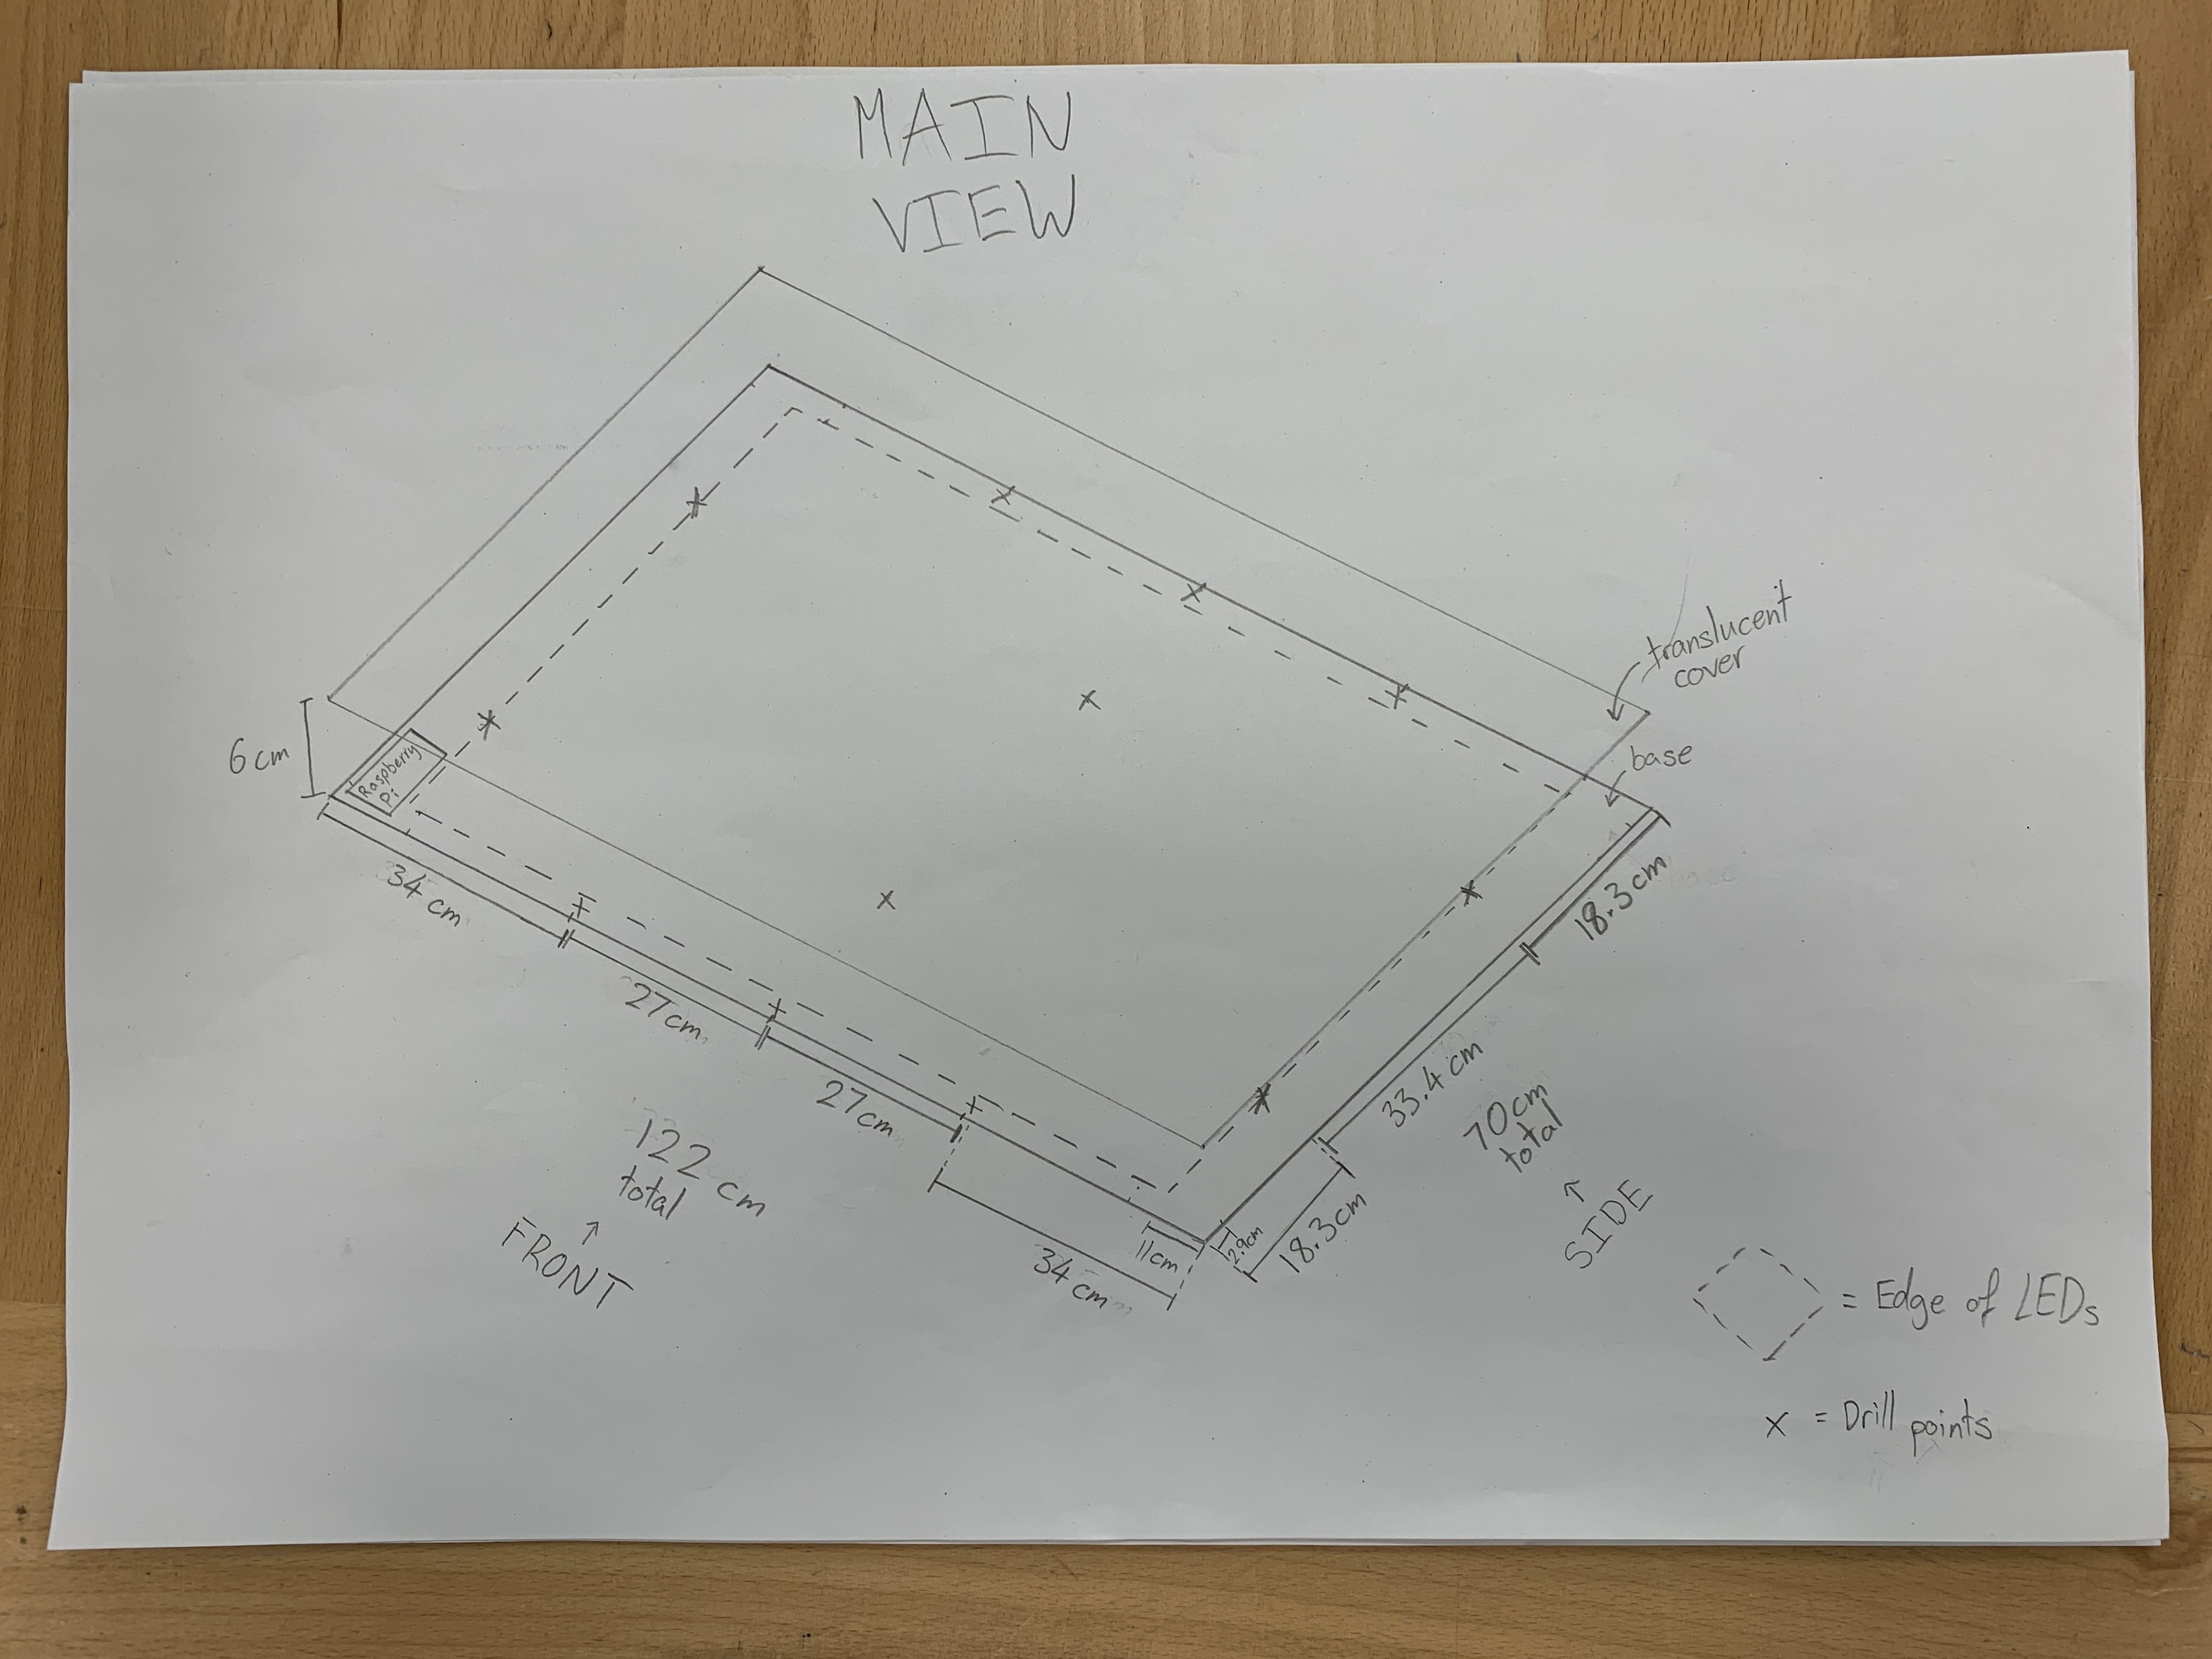 MAIN
VIEW
translucent
cover
base
6 cm
Raspberry
Pi
34 cm
27 cm
27 cm
34 cm
11 cm
2.9cm
18.3cm
33.4 cm
18.3 cm
122 cm
total
↑
FRONT
70 cm
total
↑
SIDE
= Edge of LEDs
x = Drill points